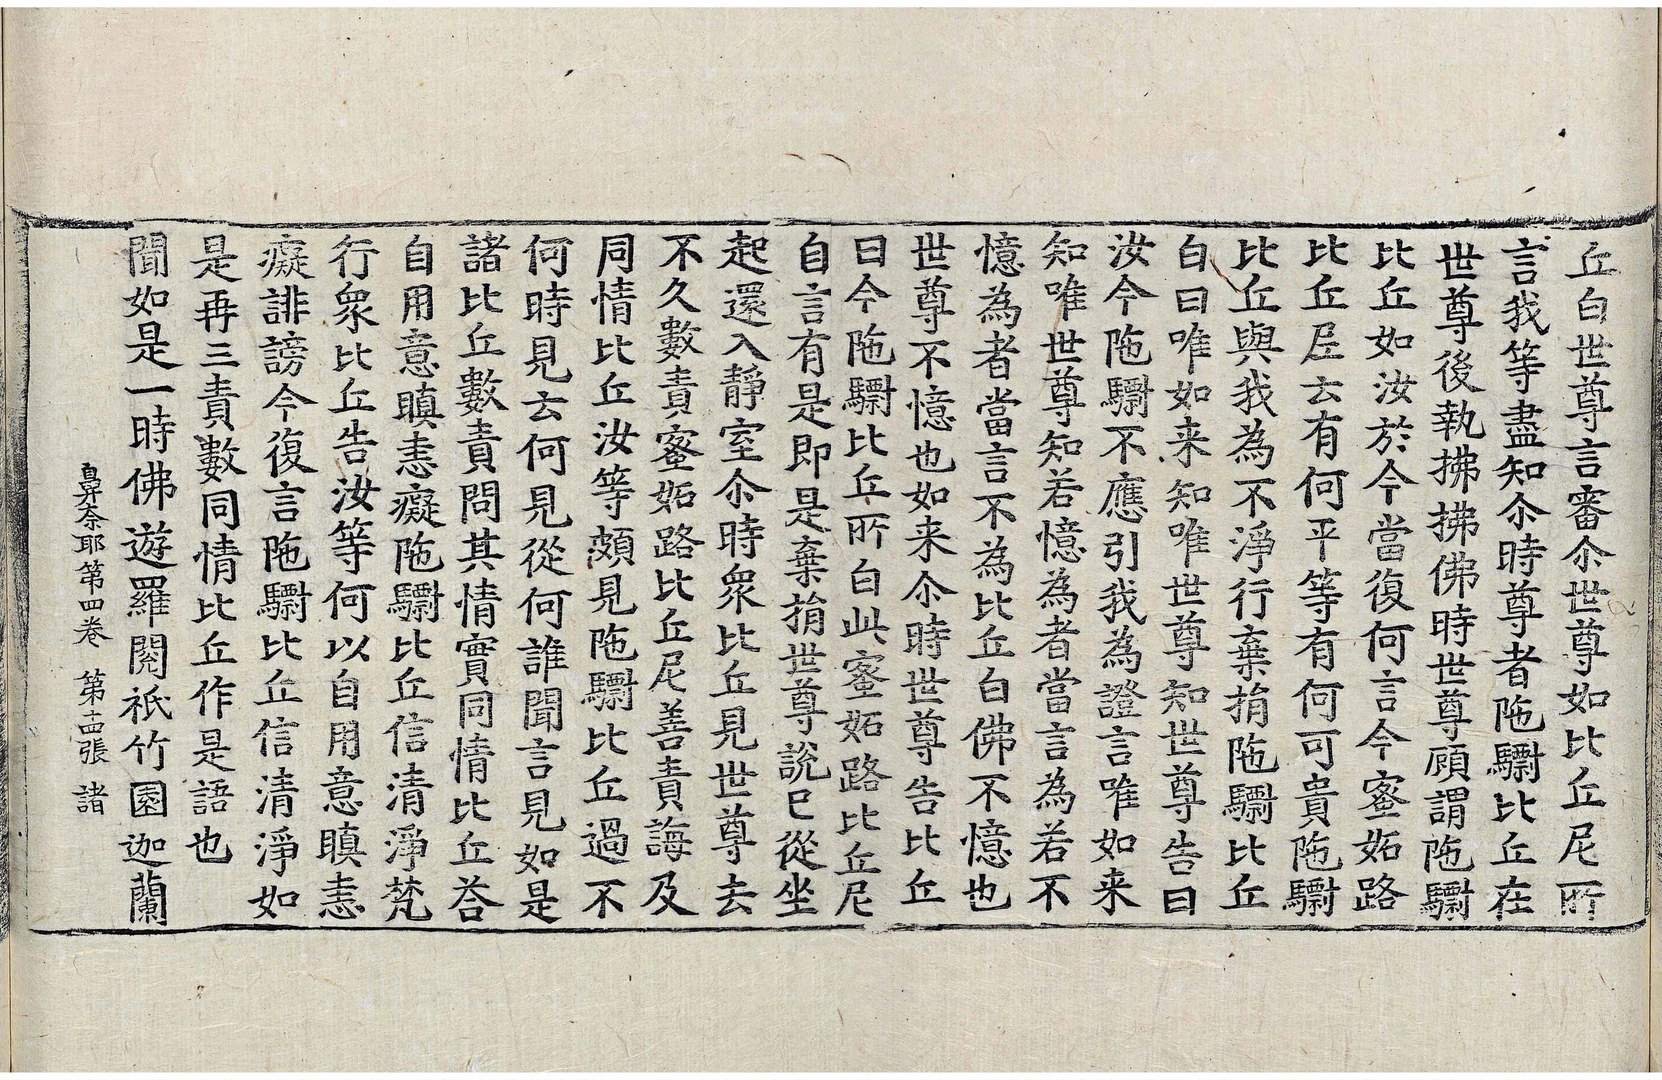 丘白世尊言審尒世尊如比丘尼所
言我等盡知尒時尊者陁驣比丘在
世尊後執拂拂佛時世尊顧謂陁驣
比丘如汝於今當復何言今蜜妬路
比丘𡰱去有何平等有何可貴陁驣
比丘與我為不淨行棄捐陁驣比丘
白曰唯如来知唯世尊知世尊告曰
汝今陁驣不應引我為證言唯如来
知唯世尊知若憶為者當言為若不
憶為者當言不為比丘白佛不憶也
世尊不憶也如来尒時世尊告比丘
曰今陁驣比丘所白此蜜妬路比丘尼
自言有是即是棄捐世尊說已從坐
起還入靜室尒時衆比丘見世尊去
不久數責蜜妬路比丘尼善責誨及
同情比丘汝等頗見陁驣比丘過不
何時見去何見從何誰聞言見如是
諸比丘數責問其情實同情比丘荅
自用意瞋恚癡陁驣比丘信清淨梵
行衆比丘告汝等何以自用意瞋恚
癡誹謗今復言陁驣比丘信清淨如
是再三責數同情比丘作是語也
聞如是一時佛遊羅閱祇竹園迦蘭
鼻奈耶第四卷　第十四張　諸